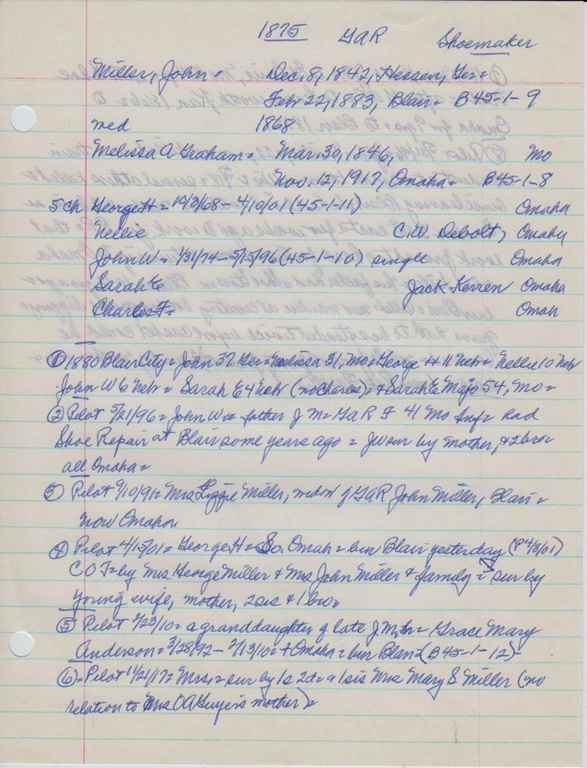 1875 GAR Shoemaker
Miller, John = Dec. 8, 1842, Hessen, Ger =
Feb. 22, 1883, Blair = B45-1-9
med 1868
Melissa A Graham = Mar. 30, 1846, Mo
Nov. 12, 1917, Omaha = B45-1-8
5 ch George H = 10/3/68 - 4/10/01 (45-1-11) Omaha
Nellie C.W. Debolt, Omaha
John W = 1/31/74 - 5/15/96 (45-1-10) single Omaha
Sarah E Jack Kerren Omaha
Charles F = Omah
① 1880 Blair City = John 37 Ger = Melissa 31, Mo = George H 11 Neb = Nellie 10 Neb
John W 6 Neb = Sarah E 4 Neb (no Charles) = + Sarah E 54, Mo =
② Pilot 5/21/96 = John W = father J M = GaR F 41 Mo Inf = had
Shoe Repair at Blair some years ago = J W sur by mother, + 2 bro =
all Omaha =
③ Pilot 9/10/91 = Mrs Lizzie Miller, widow of GaR John Miller, Blair =
now Omaha
④ Pilot 4/15/01 = George H = So Omah = bur Blair yesterday (P 4/8/01)
C O T = by Mrs George Miller & Mrs John Miller & family = sur by
young wife, mother, 2 sis & 1 bro
⑤ Pilot 2/23/10 = a granddaughter of late J M, Sr = Grace Mary
Anderson = 3/28/92 - 2/13/10 = + Omaha = bur Blair = (B45-1-12) =
⑥ = Pilot 11/21/17 = Mrs, = sur by 1s 2d = & 1 sis Mrs Mary E Miller (no
relation to Mrs O A Guyer's mother) =